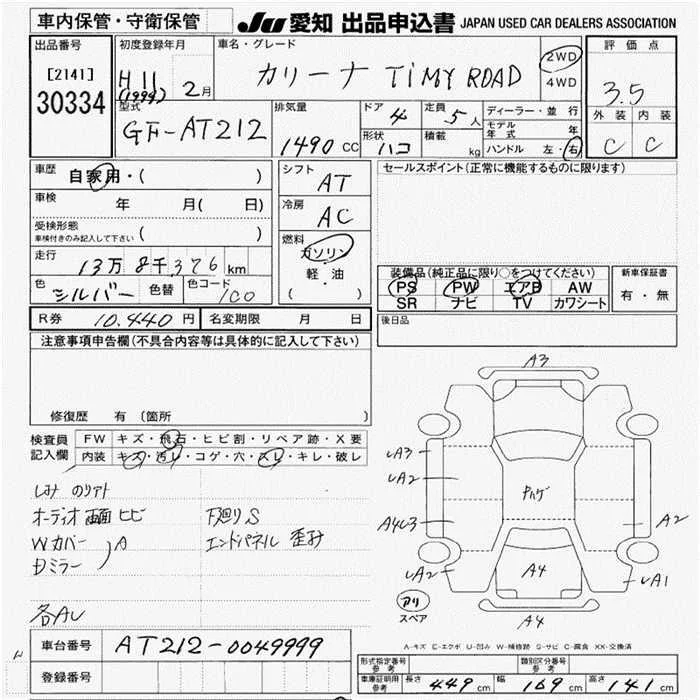 車内保管・守衛保管
JU 愛知 出品申込書 JAPAN USED CAR DEALERS ASSOCIATION
出品番号
[2141]
30334
初度登録年月
H11
(1999) 2月
車名・グレード
カリーナ TiMY ROAD
2WD
4WD
評価点
3.5
外装 内装
C C
型式
GF-AT212
排気量
1490 CC
ドア 4
定員 5人
形状 ハコ
積載 kg
ディーラー・並行
モデル年式 年
ハンドル 左・右
車歴 自家用・( )
車検 年 月( 日)
受検形態
車検付きのみ記入して下さい ( )
走行
13万8千376km
色 シルバー 色替 色コード 1C0
シフト
AT
冷房
AC
燃料
ガソリン
軽・油
( ・ )
セールスポイント(正常に機能するものに限ります)
装備品(純正品に限り○をつけてください)
PS PW エアB AW
SR ナビ TV カワシート
新車保証書
有・無
R券 10.440円 名変期限 月 日
後日品
注意事項申告欄(不具合内容等は具体的に記入して下さい)
修復歴 有(箇所 )
検査員記入欄
FW キズ・飛石・ヒビ割・リペア跡・X要
内装 キズ・汚レ・コゲ・穴・スレ・キレ・破レ
しみ のりアト
オーディオ画面ヒビ 下廻りS
Wカバー A エンドパネル 歪み
Dミラー
各AU
A3
A3
A2
A4U3
A2
A2
A1
A4
A4
アリ
スペア
A-キズ E-エクボ U-凹み W-補修跡 S-サビ C-腐食 XX-交換済
車台番号 AT212-0049999
登録番号
形式指定番号 参考
類別区分番号 参考
車庫証明用 参考 長さ 449cm 幅 169cm 高さ 141cm